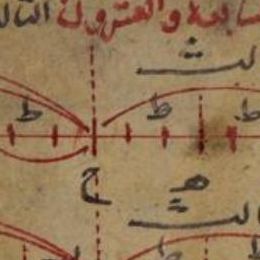 سابعة والعشرون الثا
لث
ط ط ط
ح ه
لث
ط ط